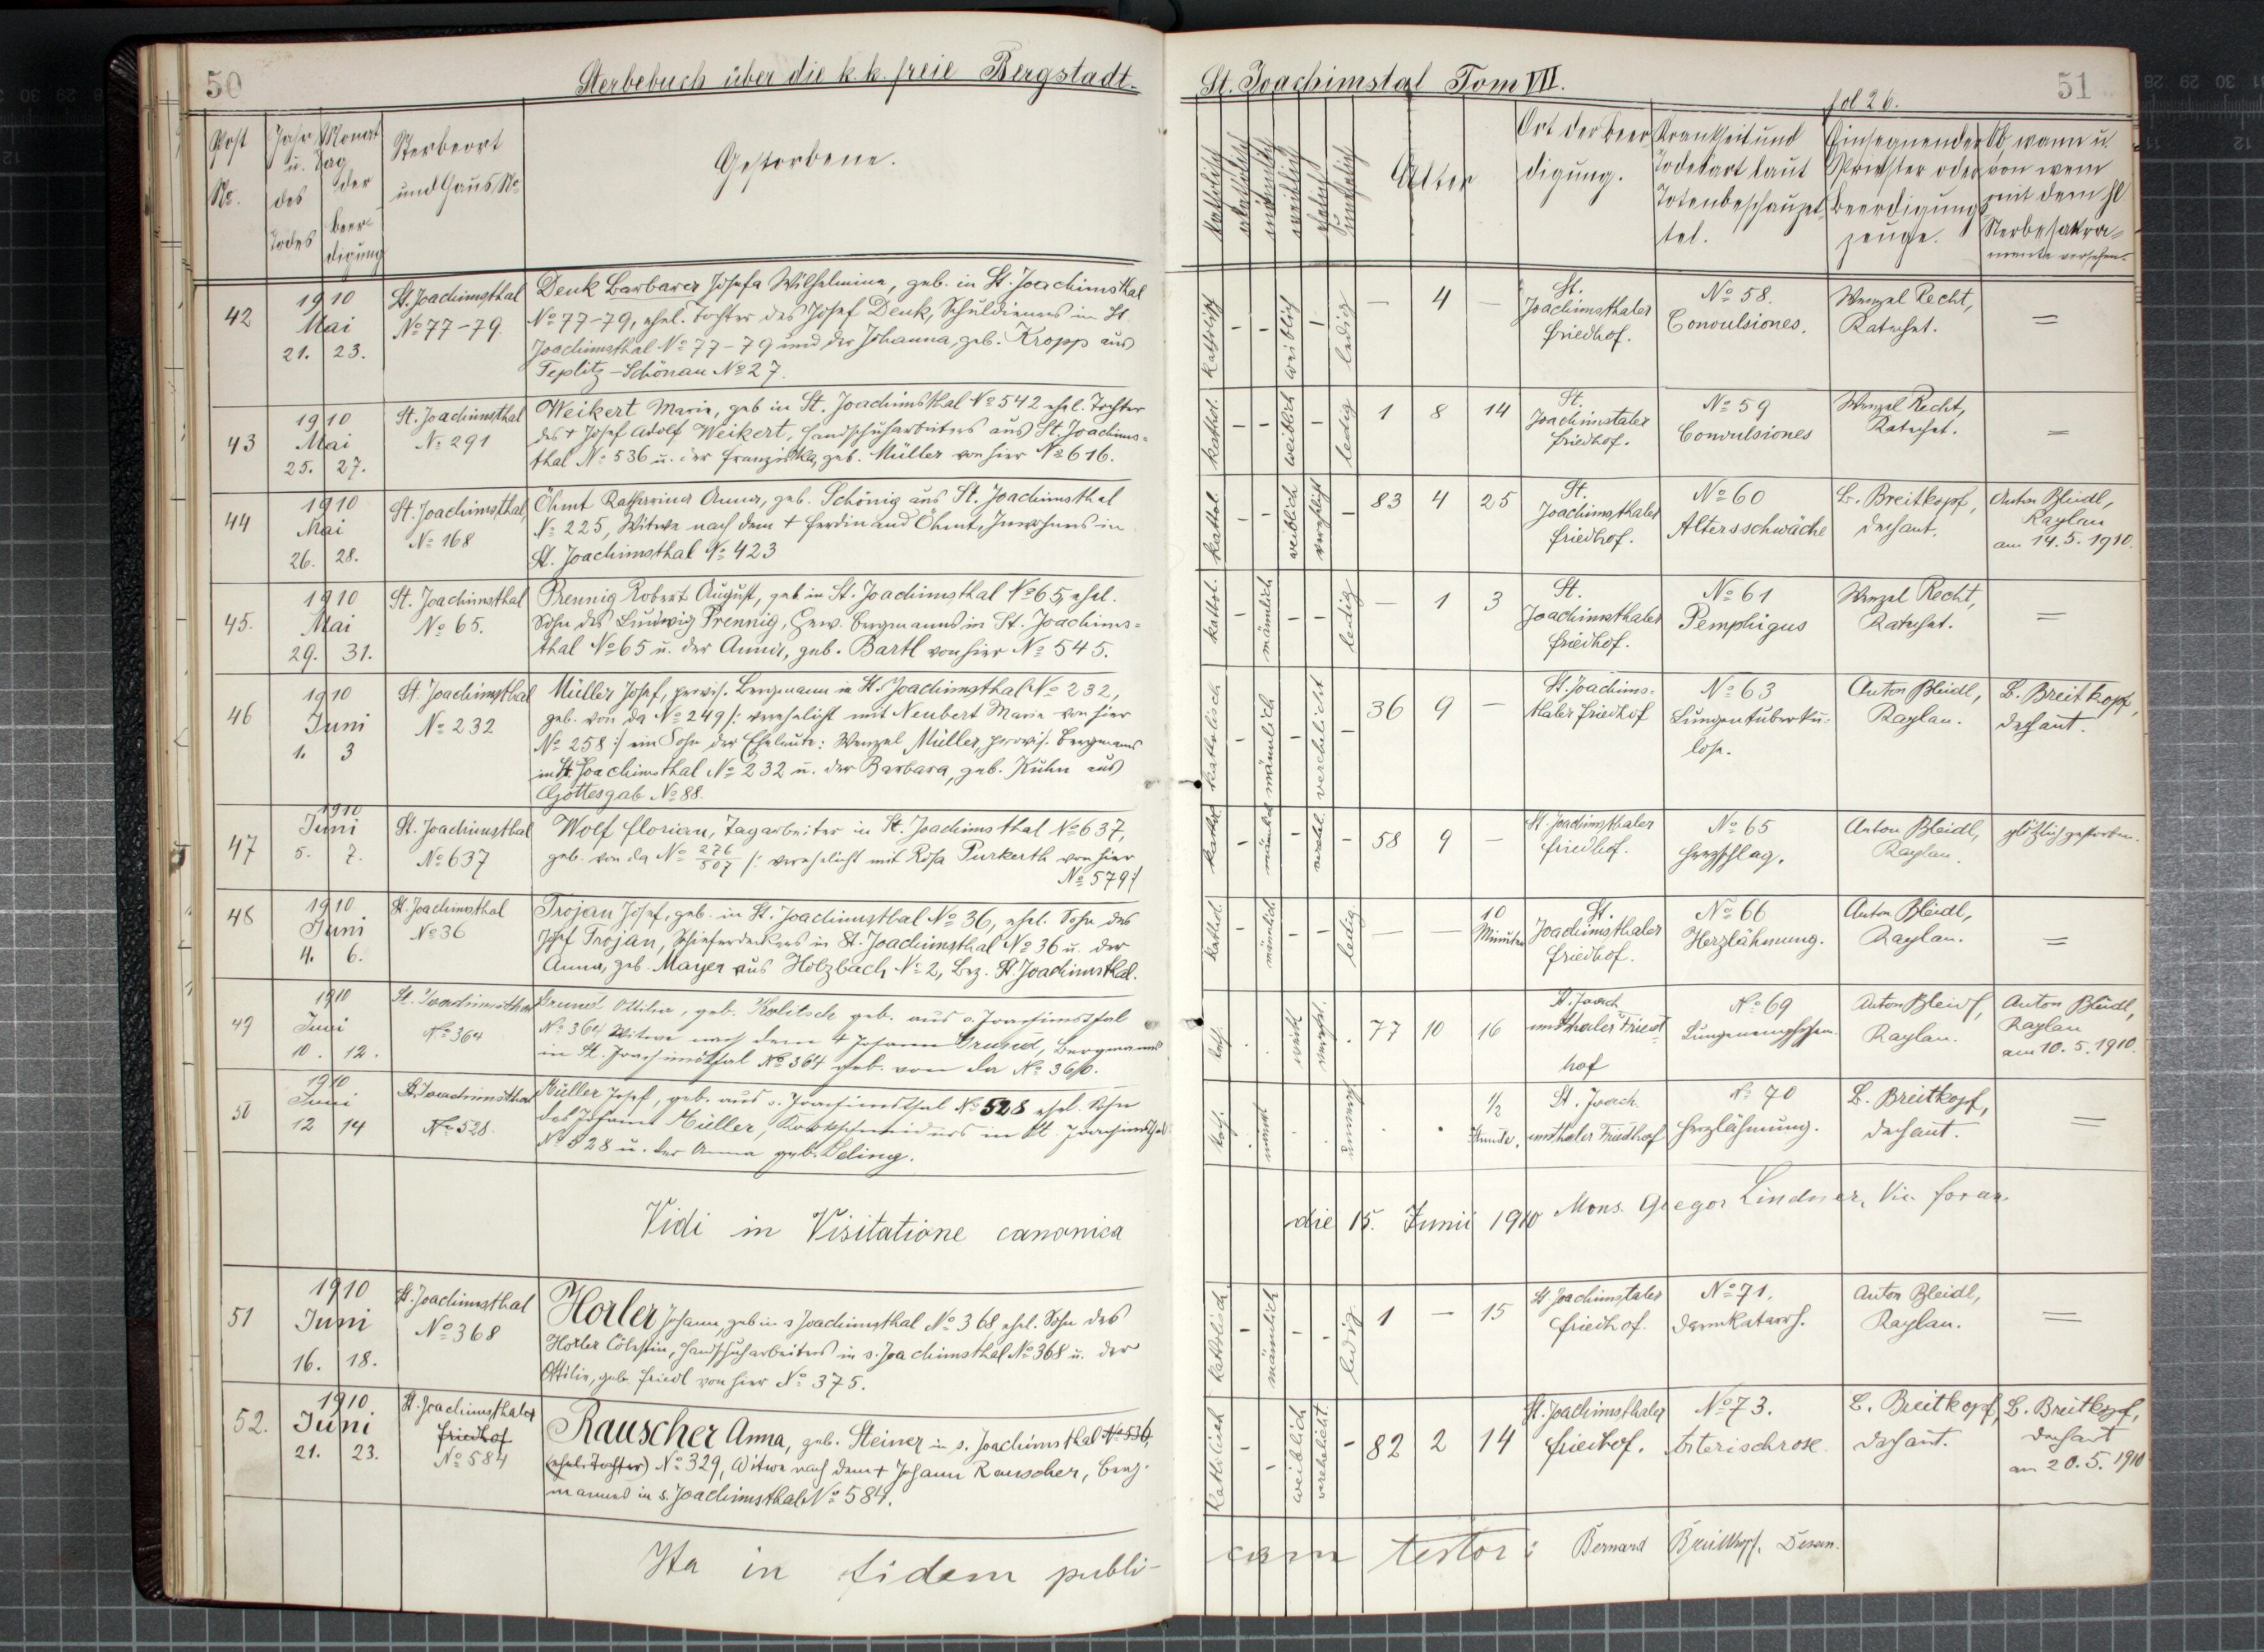 50
Sterbebuch über die k. k. freie Bergstadt
St. Joachimstal Tom VII.
fol 26.
51
Post No.
Jahr u. Tag des Todes
Monat der Beerdigung
Sterbeort und Haus No
Gestorbene.
katholisch
männlich
weiblich
Alter
Ort der Beerdigung.
Krankheit und Todesart laut Totenbeschauzettel.
Einsegnender Priester oder Beerdigungszeuge.
Ob, wann u. von wem mit dem hl Sterbesakramente versehen.
42
1910
Mai
21. 23.
St. Joachimsthal
No 77-79.
Denk Barbara Josefa Wilhelmine, geb. in St. Joachimsthal
No 77-79, ehel. Tochter des Josef Denk, Schuldieners in St.
Joachimsthal No 77-79 und der Johanna, geb. Kropp aus
Teplitz-Schönau No 27.
katholisch
-
-
weiblich
-
ledig
—
4
—
St.
Joachimsthaler
Friedhof.
No 58.
Convulsiones.
Wenzel Recht,
Katechet.
=
43
1910
Mai
25. 27.
St. Joachimsthal
No 291
Weikert Marie, geb in St. Joachimsthal No 542 ehel. Tochter
des + Josef Adolf Weikert, Handschuharbeiters aus St. Joachims=
thal No 536 u. der Franziska, geb. Müller von hier No 616.
kathol.
-
-
weiblich
-
ledig
1
8
14
St.
Joachimstaler
Friedhof.
No 59
Convulsiones
Wenzel Recht,
Katechet.
=
44
1910
Mai
26. 28.
St. Joachimsthal,
No 168
Öhmt Katharina Anna, geb. Schönig aus St. Joachimsthal
No 225, Witwe nach dem + Ferdinand Öhmt, Inwohners in
St. Joachimsthal No 423
kathol.
-
-
weiblich
verehlicht
-
83
4
25
St.
Joachimsthaler
Friedhof.
No 60
Altersschwäche
B. Breitkopf,
Dechant.
Anton Bleidl,
Kaplan
am 14. 5. 1910.
45.
1910
Mai
29. 31.
St. Joachimsthal
No 65.
Prennig Robert August, geb in St. Joachimsthal No 65, ehel.
Sohn des Ludwig Prennig, Gew. Bergmanns in St. Joachims=
thal No 65 u. der Anna, geb. Bartl von hier No 545.
kathol.
-
männlich
-
-
ledig
—
1
3
St.
Joachimsthaler
Friedhof.
No 61
Pemphigus
Wenzel Recht,
Katechet.
=
46
1910
Juni
1. 3
St. Joachimsthal
No 232
Müller Josef, provis. Bergmann in St. Joachimsthal No 232,
geb. von da No 249 /: verehelicht mit Neubert Marie von hier
No 258 :/ ein Sohn der Eheleute: Wenzel Müller, provis. Bergmanns
in St. Joachimsthal No 232 u. der Barbara, geb. Kuhn aus
Gottesgab No 88.
katholisch
-
männlich
-
verehelicht
-
36
9
—
St. Joachims-
thaler Friedhof
No 63
Lungentuberku-
lose.
Anton Bleidl,
Kaplan.
B. Breitkopf,
Dechant.
47
1910
Juni
5. 7.
St. Joachimsthal
No 637
Wolf Florian, Tagarbeiter in St. Joachimsthal No 637,
geb. von da No 276/507 /: verehelicht mit Rosa Purkerth von hier
No 579 :/
kathol.
-
-
-
58
9
—
St. Joachimsthaler
Friedhof.
No 65
Herzschlag.
Anton Bleidl,
Kaplan.
plötzlich gestorben.
48
1910
Juni
4. 6.
St. Joachimsthal
No 36
Trojan Josef, geb. in St. Joachimsthal No 36, ehel. Sohn des
Josef Trojan, Schieferdeckers in St. Joachimsthal No 36 u. der
Anna, geb. Mayer aus Holzbach No 2, Bez. St. Joachimsthal.
kathol.
-
männlich
-
-
ledig
—
—
10
Minuten
St.
Joachimsthaler
Friedhof.
No 66
Herzlähmung.
Anton Bleidl,
Kaplan.
=
49
1910
Juni
10. 12.
St. Joachimsthal
No 364
Grund Ottilia, geb. Kolitsch geb. aus s. Joachimsthal
No 364 Witwe nach dem + Johann Grund, Bergmanns
in St. Joachimsthal No 364 geb. von da No 360.
kath.
weibl.
verehl.
77
10
16
St. Joach
imsthaler Fried
hof
No 69
Lungenemphysem.
Anton Bleidl,
Kaplan.
Anton Bleidl,
Kaplan
am 10. 5. 1910.
50
1910
Juni
12 14
St. Joachimsthal
No 528
Müller Josef, geb. aus s. Joachimsthal No 528 ehel. Sohn
des Johann Müller, Korkschneiders in St. Joachimsthal
No 528 u. der Anna geb. Leling.
kath.
½
Stunde.
St. Joach.
imsthaler Friedhof
No 70
Herzlähmung.
B. Breitkopf,
Dechant.
=
Vidi in Visitatione canonica die 15. Junii 1910 Mons. Gregor Lindner, Vic. foran.
51
1910
Juni
16. 18.
St. Joachimsthal
No 368
Horler Johann, geb in s Joachimsthal No 368 ehel. Sohn des
Horler Cölestin, Handschuharbeiters in s. Joachimsthal No 368 u. der
Ottilie, geb. Friedl von hier No 375.
katholisch
-
männlich
-
-
ledig
1
—
15
St Joachimstaler
Friedhof.
No 71.
Darmkatarrh.
Anton Bleidl,
Kaplan.
=
52.
1910.
Juni
21. 23.
St. Joachimsthaler
Friedhof
No 584
Rauscher Anna, geb. Steiner in s. Joachimsthal No 536,
(ehel. Tochter) No 329, Witwe nach dem + Johann Rauscher, Berg-
mannes in s. Joachimsthal No 584.
katholisch
-
-
weiblich
verehelicht
-
82
2
14
St. Joachimsthaler
Friedhof.
No 73.
Arterischrose
B. Breitkopf,
Dechant.
B. Breitkopf,
Dechant
am 20. 5. 1910
Ita in fidem publi-
cam testor: Bernard Breitkopf, Decan.